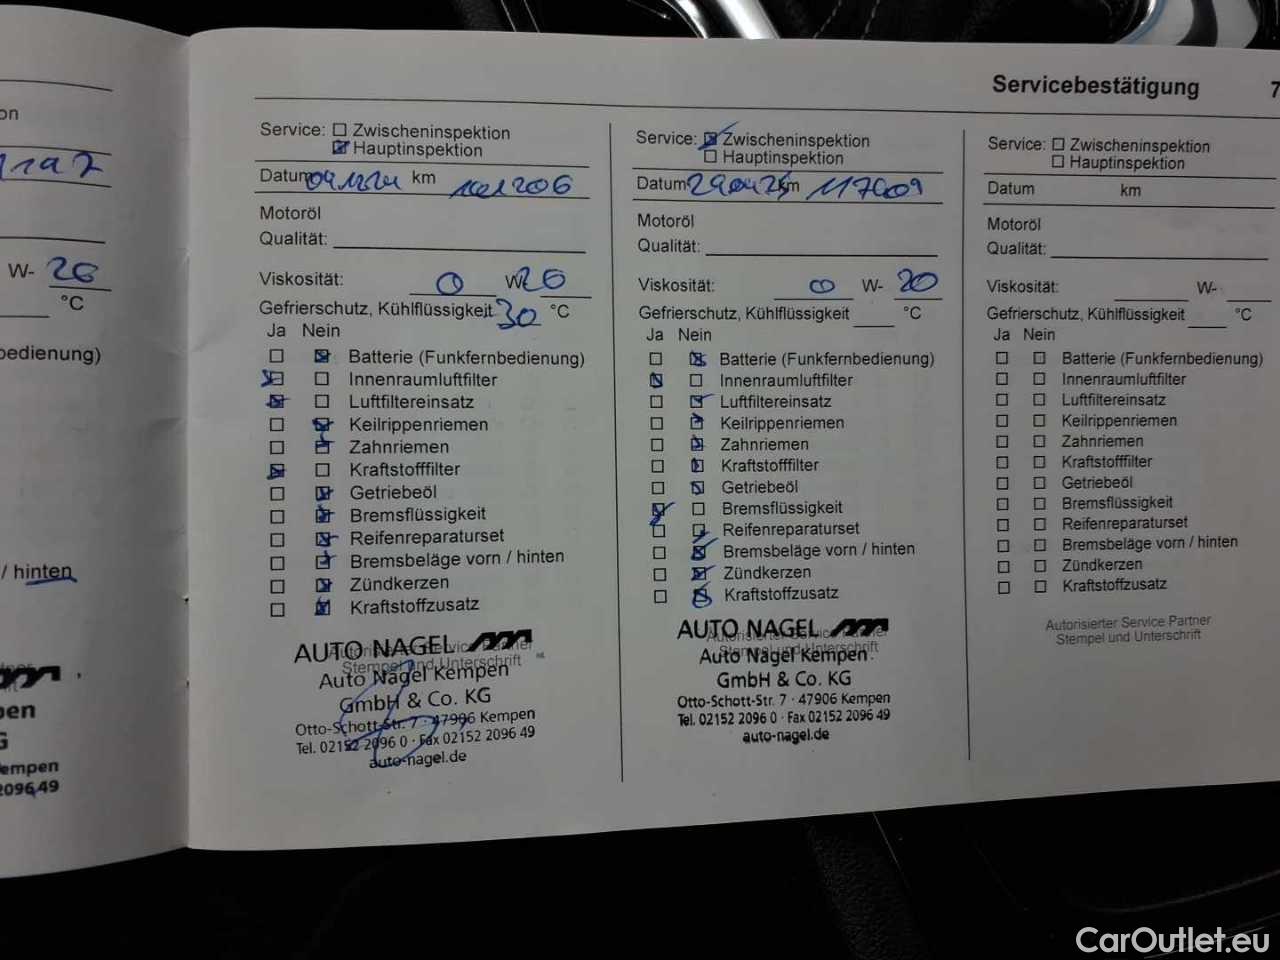 Servicebestätigung 7
on
W- 20
°C
bedienung)
/ hinten
pen
G
empen
2096 49
Service: Zwischeninspektion
Hauptinspektion
Datum 04.12.24 km 101206
Motoröl
Qualität:
Viskosität: 0 W- 20
Gefrierschutz, Kühlflüssigkeit -30 °C
Ja Nein
Batterie (Funkfernbedienung)
Innenraumluftfilter
Luftfiltereinsatz
Keilrippenriemen
Zahnriemen
Kraftstofffilter
Getriebeöl
Bremsflüssigkeit
Reifenreparaturset
Bremsbeläge vorn / hinten
Zündkerzen
Kraftstoffzusatz
AUTO NAGEL
Autorisierter Service Partner
Stempel und Unterschrift
Auto Nagel Kempen
GmbH & Co. KG
Otto-Schott-Str. 7 · 47906 Kempen
Tel. 02152 2096 0 · Fax 02152 2096 49
auto-nagel.de
Service: Zwischeninspektion
Hauptinspektion
Datum 29.04.25 km 117909
Motoröl
Qualität:
Viskosität: 0 W- 20
Gefrierschutz, Kühlflüssigkeit °C
Ja Nein
Batterie (Funkfernbedienung)
Innenraumluftfilter
Luftfiltereinsatz
Keilrippenriemen
Zahnriemen
Kraftstofffilter
Getriebeöl
Bremsflüssigkeit
Reifenreparaturset
Bremsbeläge vorn / hinten
Zündkerzen
Kraftstoffzusatz
AUTO NAGEL
Autorisierter Service Partner
Stempel und Unterschrift
Auto Nagel Kempen
GmbH & Co. KG
Otto-Schott-Str. 7 · 47906 Kempen
Tel. 02152 2096 0 · Fax 02152 2096 49
auto-nagel.de
Service: Zwischeninspektion
Hauptinspektion
Datum km
Motoröl
Qualität:
Viskosität: W-
Gefrierschutz, Kühlflüssigkeit °C
Ja Nein
Batterie (Funkfernbedienung)
Innenraumluftfilter
Luftfiltereinsatz
Keilrippenriemen
Zahnriemen
Kraftstofffilter
Getriebeöl
Bremsflüssigkeit
Reifenreparaturset
Bremsbeläge vorn / hinten
Zündkerzen
Kraftstoffzusatz
Autorisierter Service Partner
Stempel und Unterschrift
CarOutlet.eu